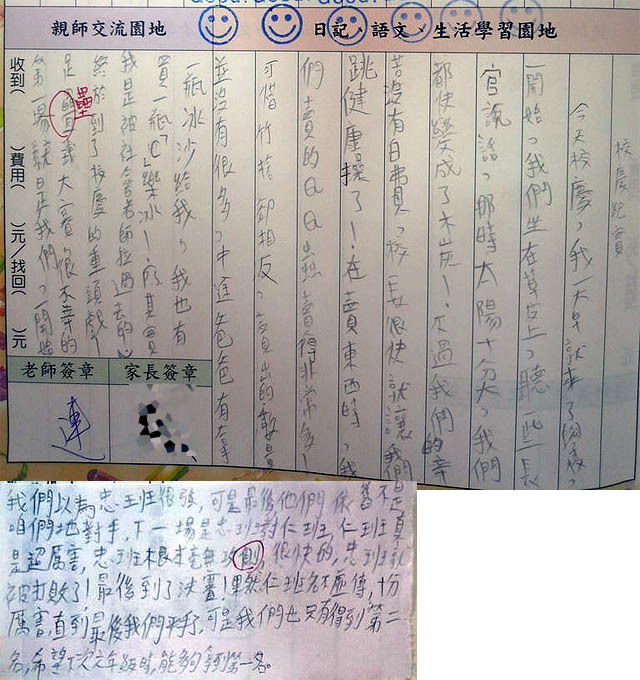 親師交流園地
日記、語文、生活學習園地
校慶紀實
今天校慶，我一大早就來了
一開始，我們坐在草皮上，聽一些長
官說話，那時太陽十分大，我們
都快變成了木炭！不過我們的辛
苦沒有白費，校長很快就讓我們
跳健康操了！在賣東西時，我
們賣的QQ蟲賣得非常多！
可惜竹籤卻相反，賣出的數量
並沒有很多，中途爸爸有拿
一瓶冰沙給我，我也有
買一瓶「C」樂冰！
我是被往會老師拉過去的
終於到了校慶的重頭戲！
是壘義大賽，很不幸的
第一場就是我們，一開始
壘
收到( )費用( )元/找回( )元
老師簽章
家長簽章
連
我們以為忠班很強，可是最後他們依舊不是
咱們地對手，下一場是忠班對仁班，仁班真
是超厲害，忠班根本毫無攻則，很快的，忠班就
被打敗了！最後到了決賽！果然仁班名不虛傳，十份
厲害，直到最後我們平手了，可是我們也只有得到第二
名，希望下次六年級時，能夠拿到第一名。